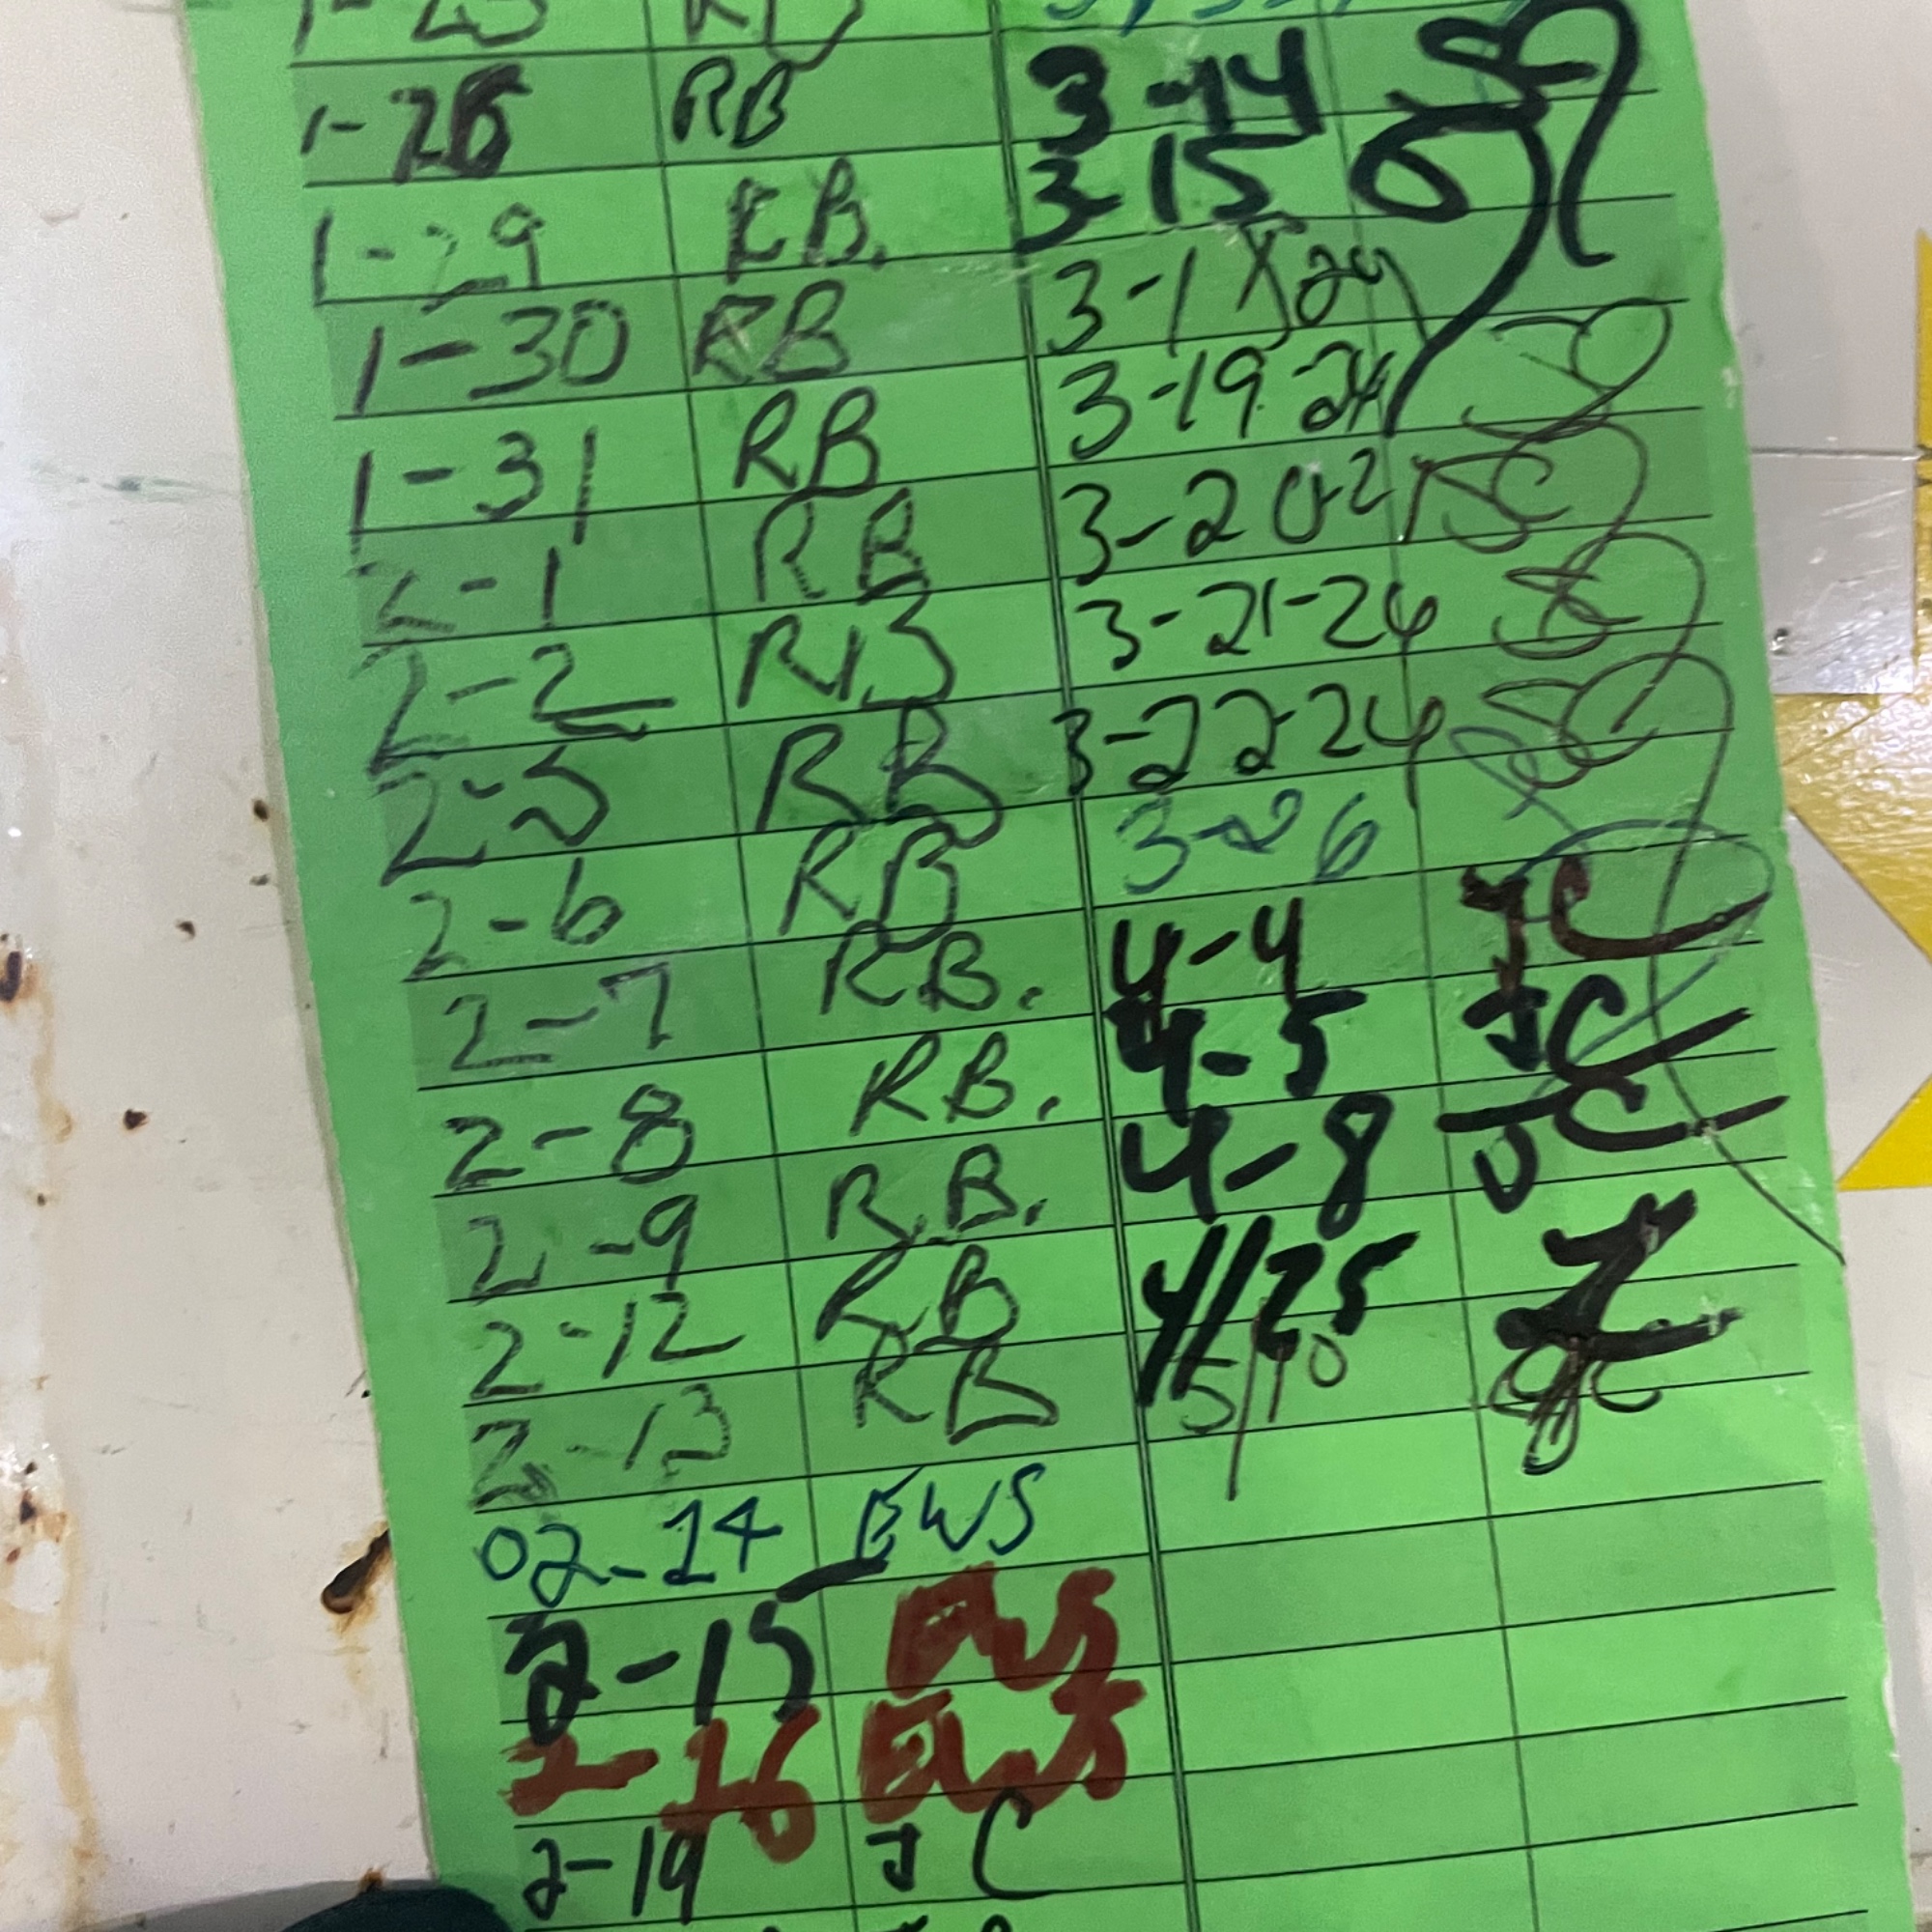 1-25 RB
1-26 RB
1-29 RB.
1-30 RB
1-31 RB
2-1 RB
2-2 RB
2-5 RB
2-6 RB
2-7 RB.
2-8 RB.
2-9 R.B.
2-12 RB
2-13 RB
02-14 EWS
2-15 EWS
2-16 EWS
2-19 JC
3-14
3-15
3-1 24
3-19-24
3-20-2
3-21-24
3-22-24
3-26
4-4 JC
4-5 JC
4-8 JC
4/25
5/10